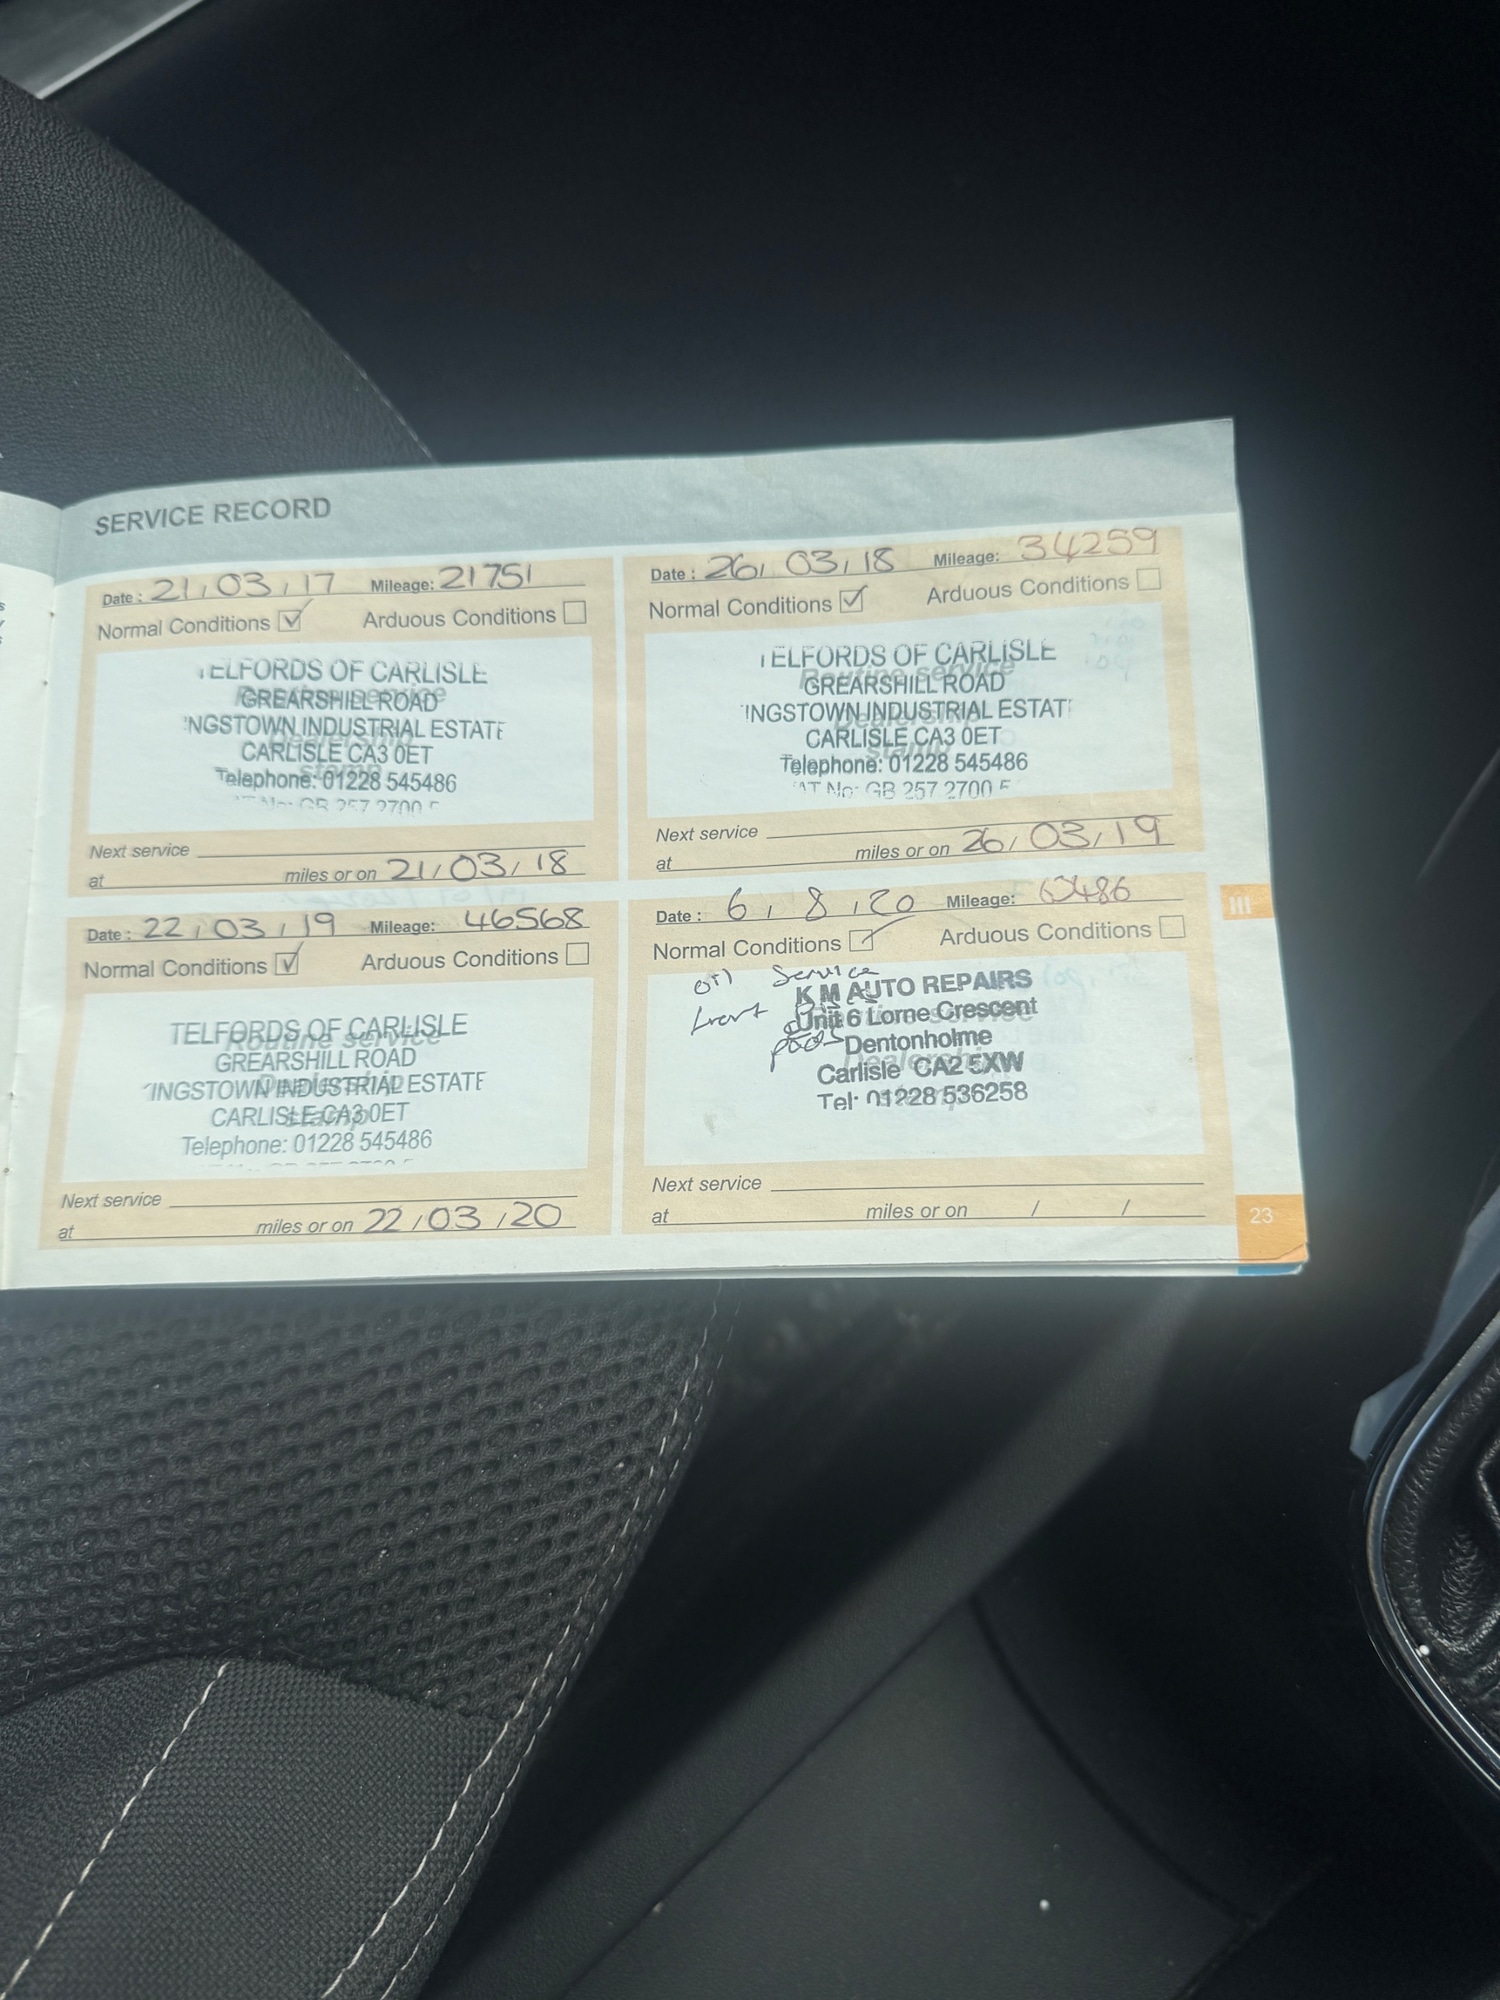 SERVICE RECORD
Date : 21/03/17 Mileage: 21751
Normal Conditions Arduous Conditions
TELFORDS OF CARLISLE
GREARSHILL ROAD
INGSTOWN INDUSTRIAL ESTATE
CARLISLE CA3 0ET
Telephone: 01228 545486
GB 257 2700
Routine service
Dealership
stamp
Next service
at miles or on 21/03/18
Date : 26/03/18 Mileage: 34259
Normal Conditions Arduous Conditions
TELFORDS OF CARLISLE
GREARSHILL ROAD
INGSTOWN INDUSTRIAL ESTAT
CARLISLE CA3 0ET
Telephone: 01228 545486
AT No: GB 257 2700
Routine service
Dealership
stamp
Next service
at miles or on 26/03/19
Date : 22/03/19 Mileage: 46568
Normal Conditions Arduous Conditions
TELFORDS OF CARLISLE
GREARSHILL ROAD
INGSTOWN INDUSTRIAL ESTATE
CARLISLE CA3 0ET
Telephone: 01228 545486
Routine service
Dealership
stamp
Next service
at miles or on 22/03/20
Date : 6/8/20 Mileage:
Normal Conditions Arduous Conditions
oil Service
front
pads
K M AUTO REPAIRS
Unit 6 Lorne Crescent
Dentonholme
Carlisle CA2 5XW
Tel: 01228 536258
Dealership
Next service
at miles or on / /
III
23